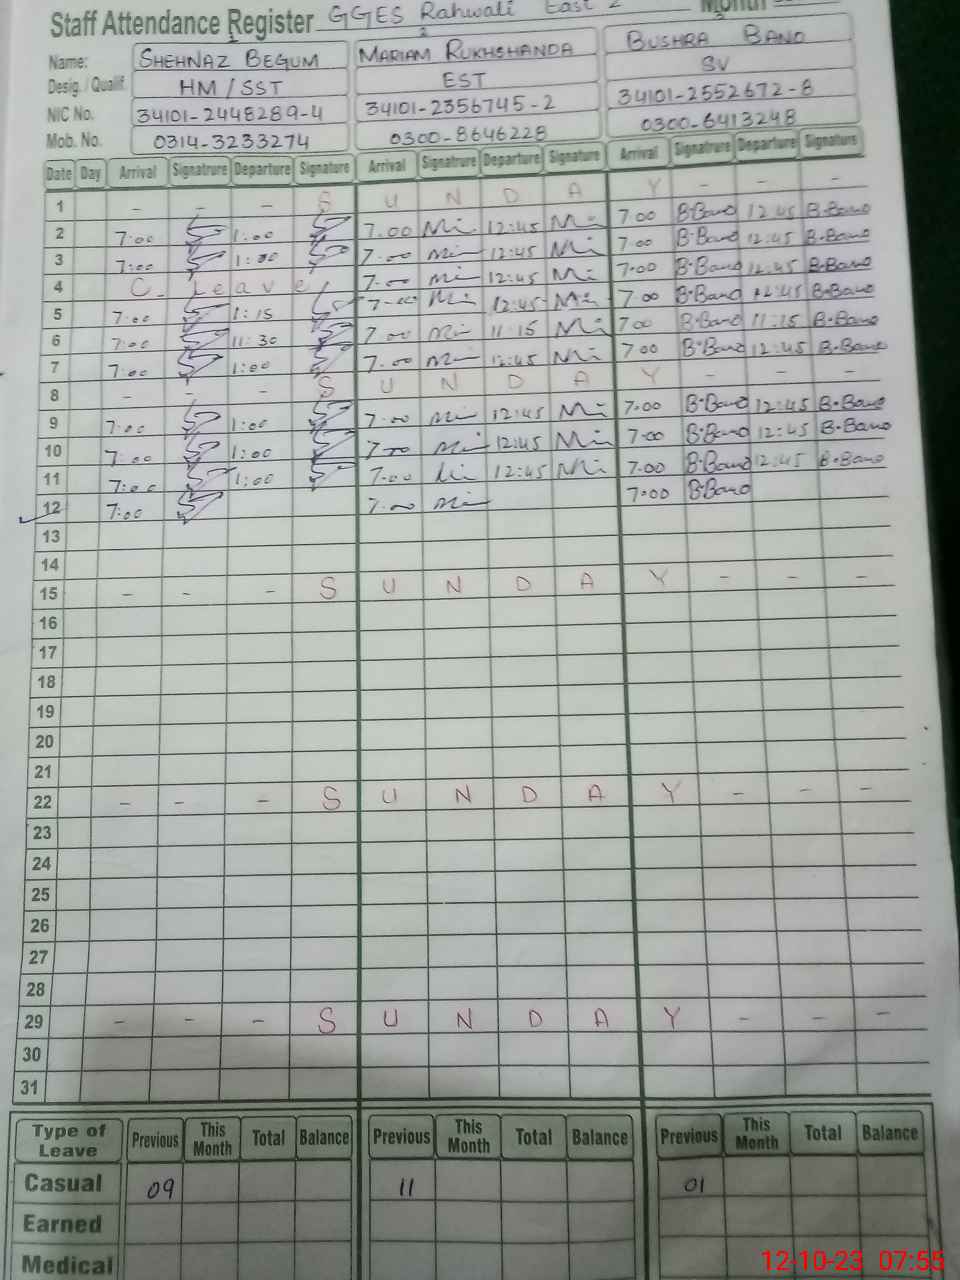 Staff Attendance Register GGES Rahwali East 2 Month
1 2 3
Name: SHEHNAZ BEGUM MARIAM RUKHSHANDA BUSHRA BANO
Desig. / Qualif. HM / SST EST SV
NIC No. 34101-2448289-4 34101-2356745-2 34101-2552672-8
Mob. No. 0314-3233274 0300-8646228 0300-6413248
Date Day Arrival Signatrure Departure Signature Arrival Signatrure Departure Signature Arrival Signatrure Departure Signature
1 - - - S U N D A Y - - -
2 7:00 1:00 7.00 12:45 7.00 B.Bano 12:45 B.Bano
3 7:00 1:00 7.00 12:45 7.00 B.Bano 12:45 B.Bano
4 C. Leave 7.00 12:45 7.00 B.Bano 12:45 B.Bano
5 7:00 1:15 7.00 12:45 7.00 B.Bano 12:45 B.Bano
6 7:00 11:30 7.00 11:15 7.00 B.Bano 11:15 B.Bano
7 7:00 1:00 7.00 12:45 7.00 B.Bano 12:45 B.Bano
8 - - - S U N D A Y - - -
9 7:00 1:00 7.00 12:45 7.00 B.Bano 12:45 B.Bano
10 7:00 1:00 7.00 12:45 7.00 B.Bano 12:45 B.Bano
11 7:00 1:00 7.00 12:45 7.00 B.Bano 12:45 B.Bano
12 7:00 7.00 7.00 B.Bano
13
14
15 - - - S U N D A Y - - -
16
17
18
19
20
21
22 - - - S U N D A Y - - -
23
24
25
26
27
28
29 - - - S U N D A Y - - -
30
31
Type of Leave Previous This Month Total Balance Previous This Month Total Balance Previous This Month Total Balance
Casual 09 11 01
Earned
Medical
12-10-23 07:55